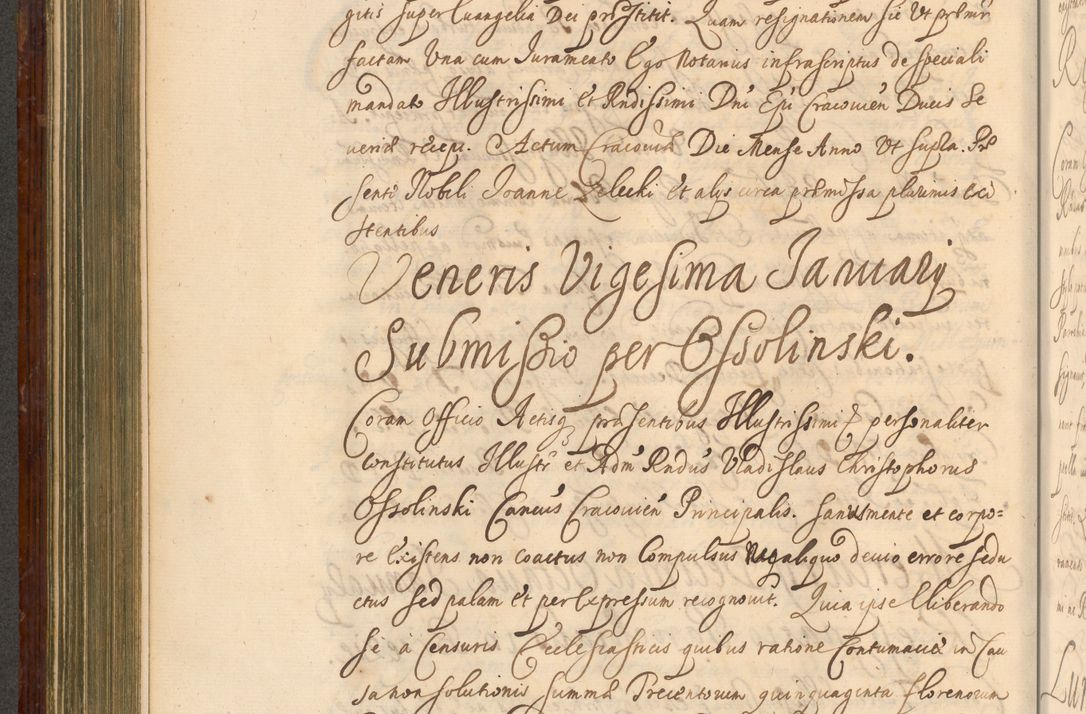 gitis super Euangelia Dei prӕstitit. Quam resignationem sic Ut prӕmis
factam Una cum Juramento Ego Notarius infrascriptus de speciali
mandato Illustrissimi et Rndissimi Dni Epi Cracovien Ducis Se
veriӕ recepi. Actum Cracoviӕ Die Mense Anno Ut supra. Prӕ
senti Nobili Joanne Zelecki et alys circa prӕmissa plurimis Exi
stentibus
Veneris Vigesima January
Submissio per Ossolinski.
Coram Officio Actisq prӕsentibus Illustrissimi personaliter
constitutus Illustr et Adm Rndus Vladislaus Christophorus
Ossolinski Cancus Cracovien Principalis. sanus mente et corpo=
re Existens non coactus non Compulsus aliquo devio errore sedu
ctus Sed palam et per Expressum recognovit. Quia ipse Eliberando
se à Censuris Ecclesiasticis quibus ratione Contumaciӕ in Cau
sa non solutionis summӕ Trecentorum quinquaginta florenorum